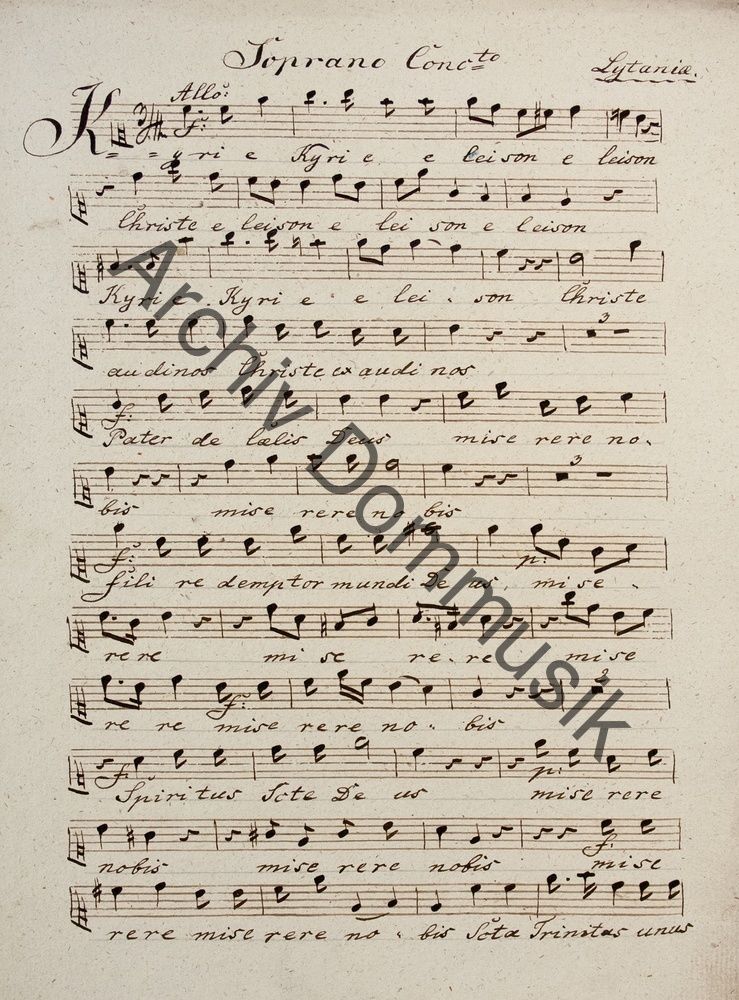 Soprano Conc:to Lytaniæ.
Allo:
f:
Kyri e Kyri e e leison e leison
Christe e leison e lei son e leison
Kyri e Kyri e e lei . son Christe
3
audinos Christe ex audi nos
f:
Pater de Cœlis Deus mise rere no.
3
bis mise rere no bis
f: p:
fili re demptor mundi De us mi se .
rere mi se re . re mi se
f: 2
re re mise rere no . bis
f p:
Spiritus Scte De us mise rere
f:
nobis mise rere nobis mise
rere mise rere no . bis Scta Trinitas unus
Archiv Dommusik